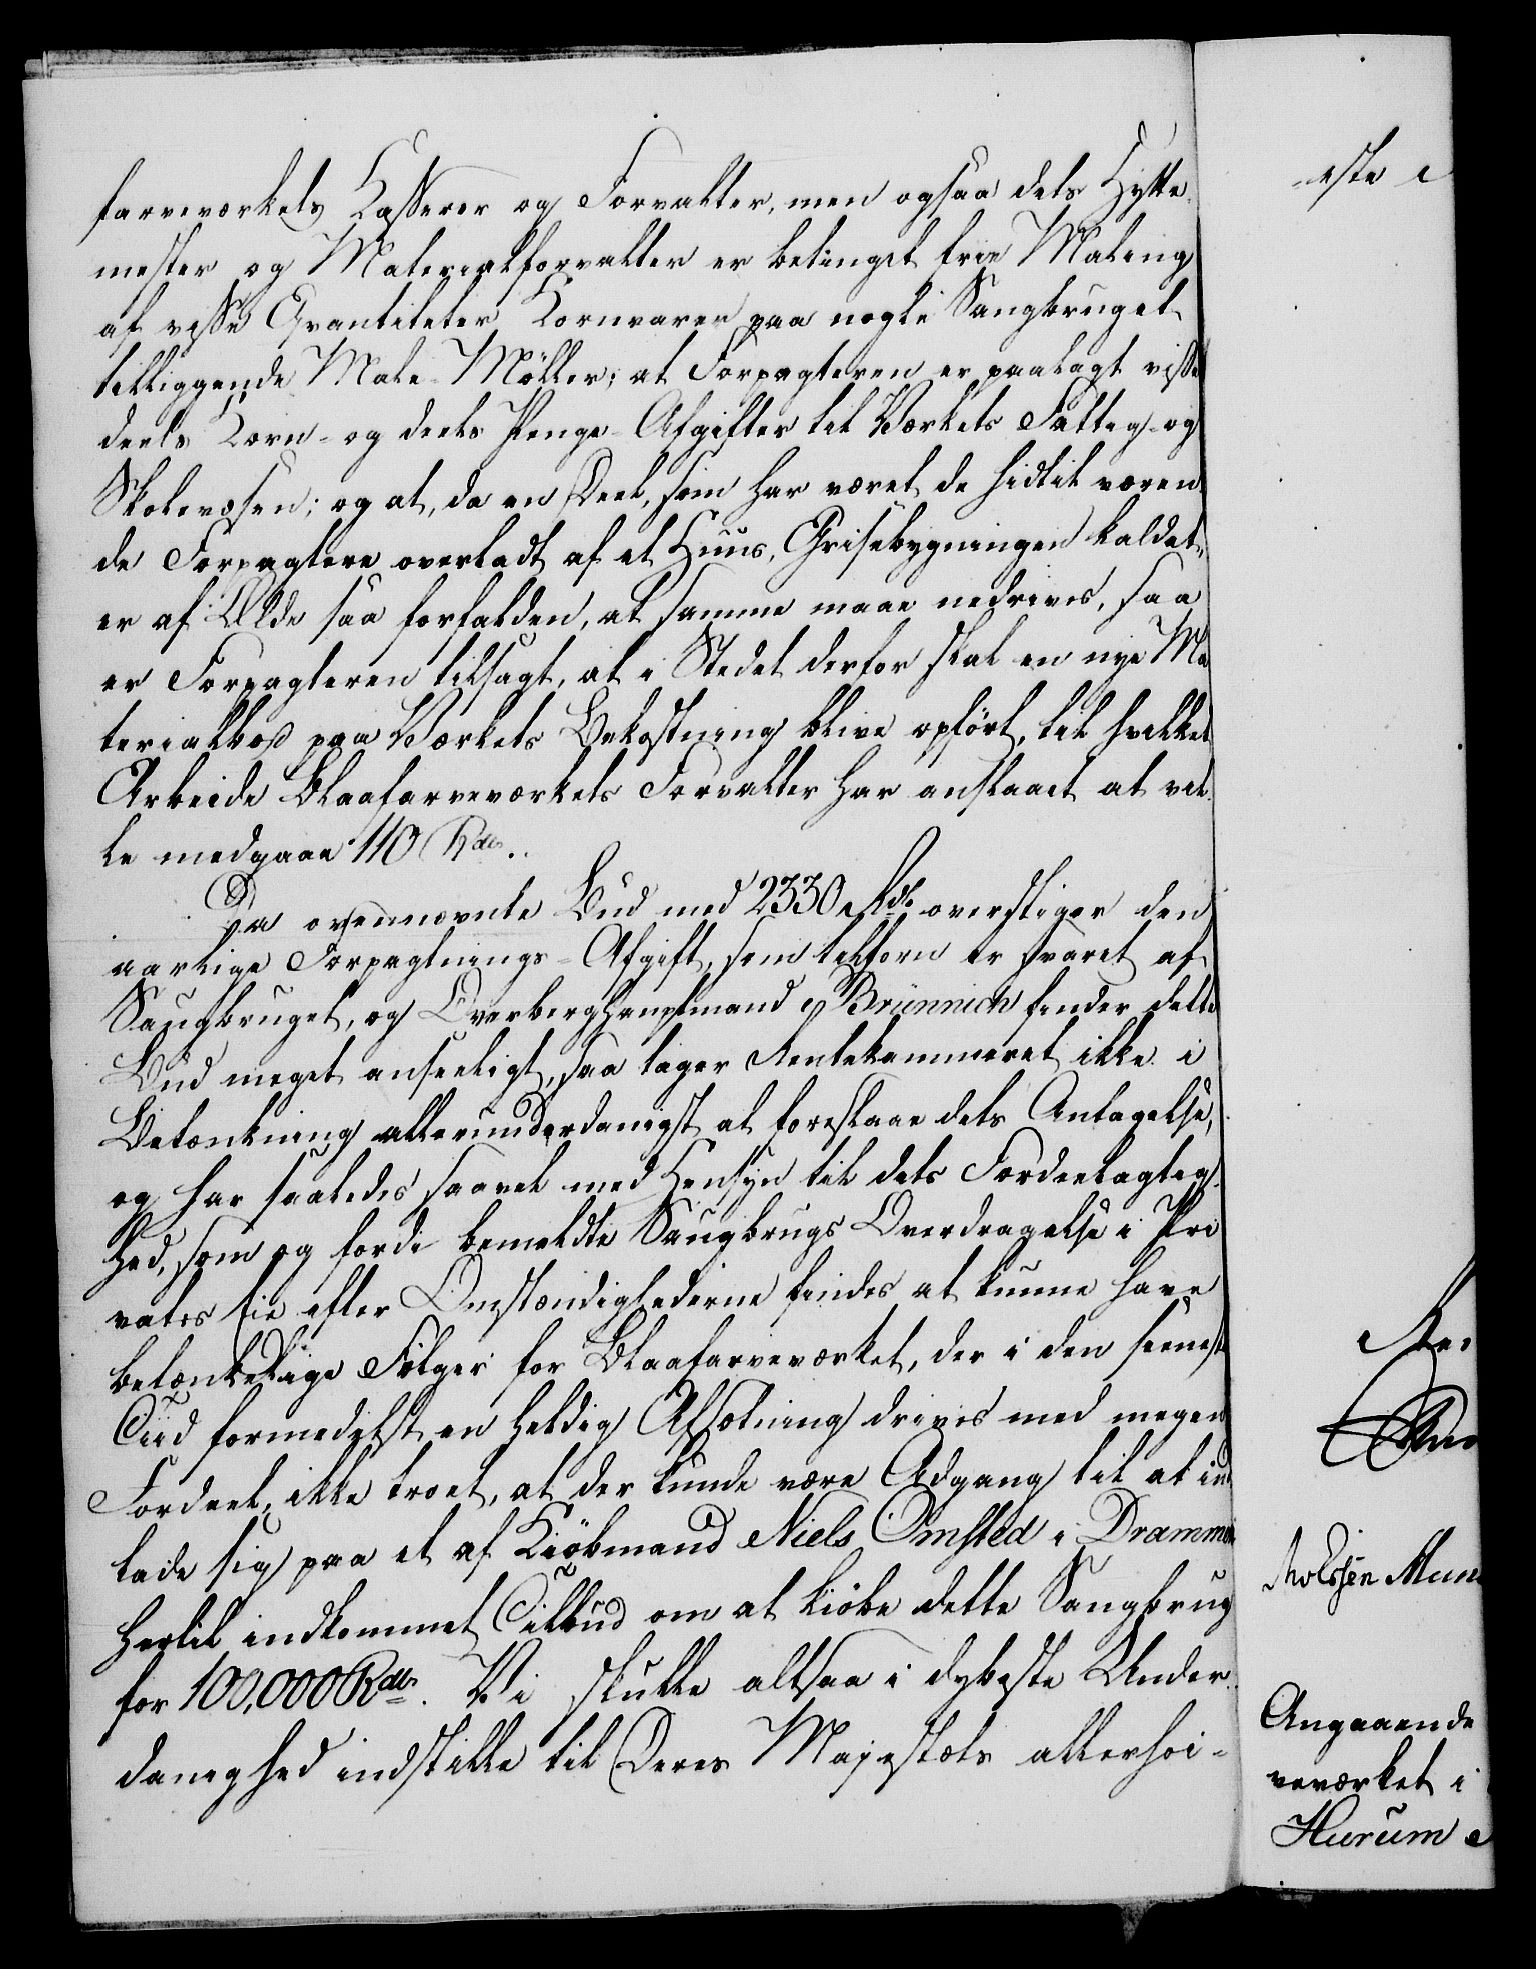 farveværkets Casserer og Forvalter, men ogsaa dets Hytte-
mester og Materialforvalter er betinget frie Maling
af visse Qvantiteter Kornvarer paa nogle Saugbruget
tilliggende Male-Møller; at Forpagteren er paalagt visse
deels Korn- og deels Penge-Afgifter til Værkets Fattig- og
Skolevæsen; og at, da en Deel, som har været de hidtil væren-
de Forpagtere overladt af et Huus, Grisebygningen kaldet,
er af Ælde saa forfalden, at samme maae nedrives, saa
er Forpagteren tilsagt, at i Stedet derfor skal en nye Ma
terialbod paa Værkets Bekostning blive opført, til hvilket
Arbeide Blaafarveværkets Forvalter har anslaaet at vil-
le medgaae 110 Rdlr.
Da ovennævnte Bud med 2330 Rdlr overstiger den
aarlige Forpagtnings-Afgift, som tilforn er svaret af
Saugbruget, og Overberghauptmand Brünnich finder dette
Bud meget anseeligt, saa tager Rentekammeret ikke i
Betænkning allerunderdanigst at foreslaae dets Antagelse,
og har saaledes saavel med Hensyn til dets Fordeelagtig-
hed, som og fordi bemeldte Saugbrugs Overdragelse i Pri
vates Eie efter Omstændighederne findes at kunne have
betænkelige Følger for Blaafarveværket, der i den seeneste
Tiid formedelst en heldig Afsætning drives med megen
Fordeel, ikke troet, at der kunde være Adgang til at ind
lade sig paa et af Kiøbmand Niels Omsted i Drammen
hertil indkommet Tilbud om at kiøbe dette Saugbrug
for 100,000 Rdlr. Vi skulle altsaa i dybeste Under-
danighed indstille til Deres Majestæts allerhøi-
Angaaende
veværket i
Hurum